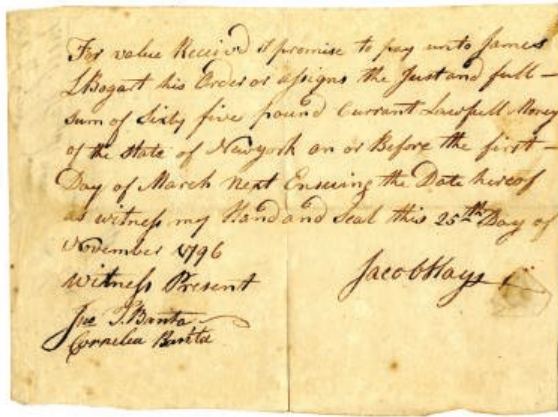 For value Received I promise to pay unto James
L Bogart his Order or assigns the Just and full
sum of Sixty five pound Currant Lawfull Money
of the State of Newyork on or Before the first
Day of March Next Ensuing the Date hereof
as witness my Hand and Seal this 25th Day of
November 1796
Witness Present
Jacob Hays
T. Banta
Cornelia Banta